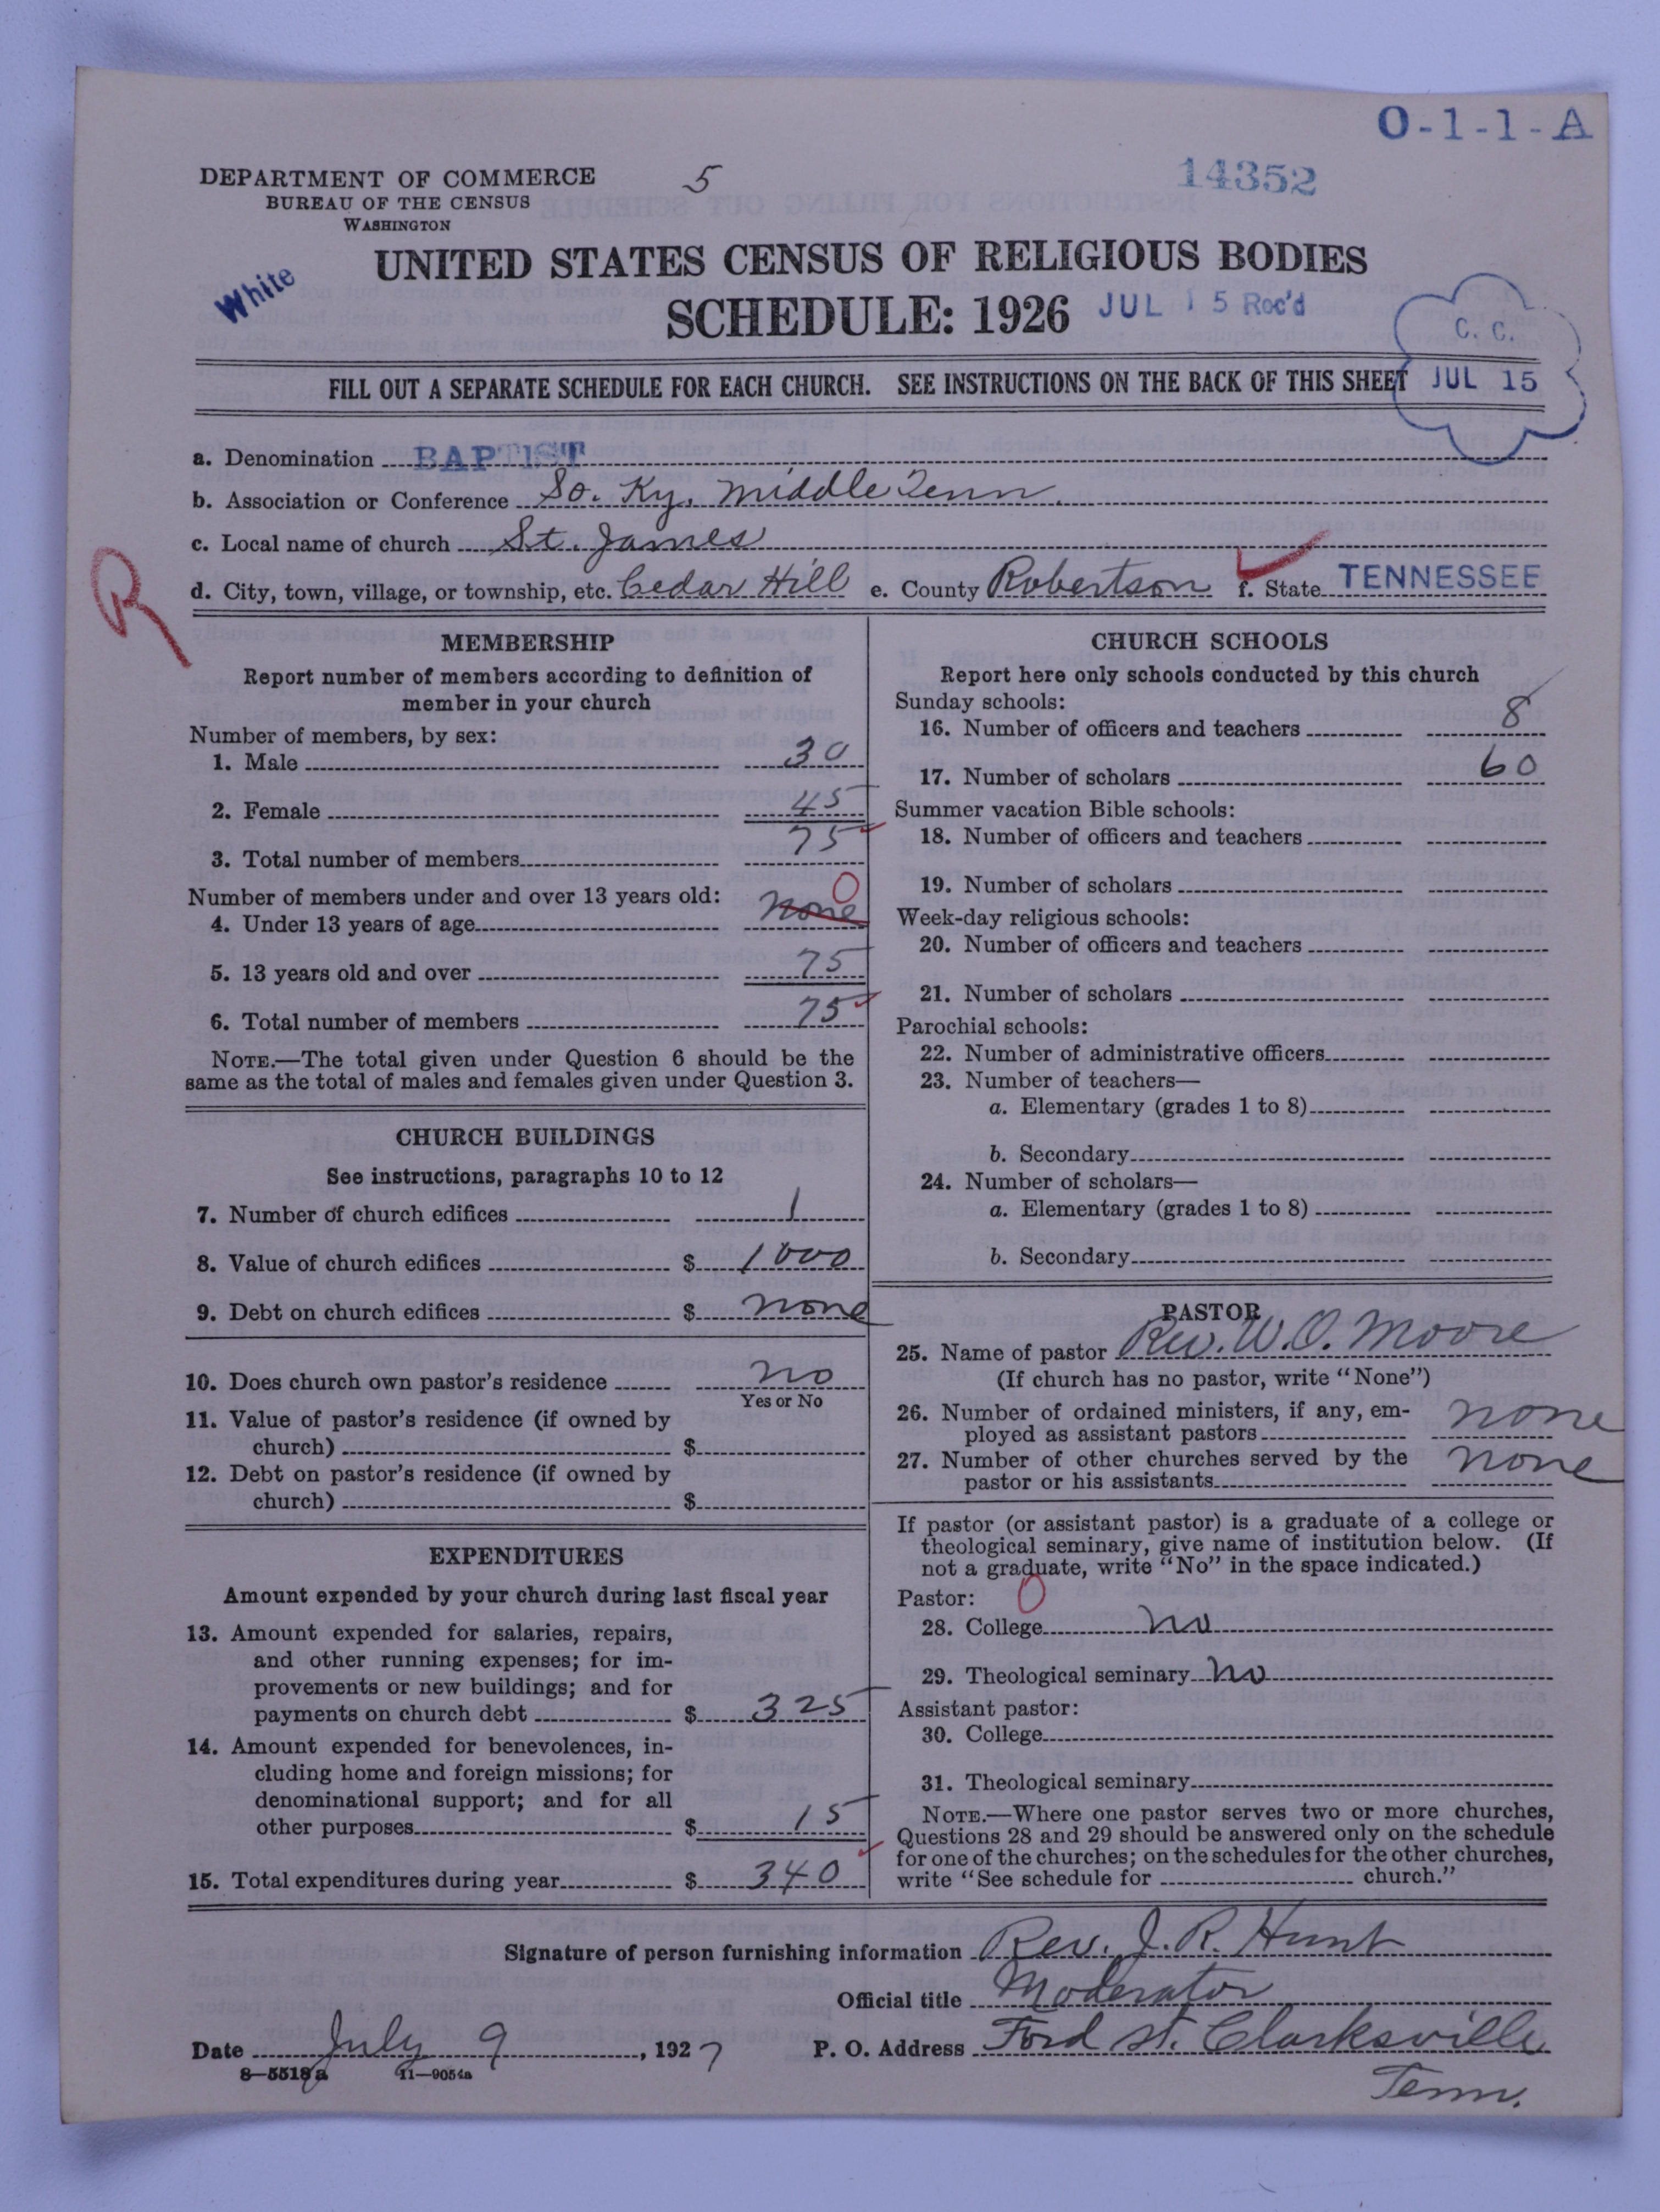 O-1-1-A
DEPARTMENT OF COMMERCE
BUREAU OF THE CENSUS
WASHINGTON
5
14352
UNITED STATES CENSUS OF RELIGIOUS BODIES
White
SCHEDULE: 1926
JUL 15 Rec'd
C. C.
JUL 15
FILL OUT A SEPARATE SCHEDULE FOR EACH CHURCH. SEE INSTRUCTIONS ON THE BACK OF THIS SHEET
a. Denomination BAPTIST
b. Association or Conference So. Ky. Middle Tenn.
c. Local name of church St. James
R
d. City, town, village, or township, etc. Cedar Hill e. County Robertson f. State TENNESSEE
MEMBERSHIP
Report number of members according to definition of
member in your church
Number of members, by sex:
1. Male 30
2. Female 45
3. Total number of members 75
Number of members under and over 13 years old:
4. Under 13 years of age none 0
5. 13 years old and over 75
6. Total number of members 75
NOTE.—The total given under Question 6 should be the
same as the total of males and females given under Question 3.
CHURCH BUILDINGS
See instructions, paragraphs 10 to 12
7. Number of church edifices 1
8. Value of church edifices $ 1000
9. Debt on church edifices $ none
10. Does church own pastor's residence no
Yes or No
11. Value of pastor's residence (if owned by
church) $
12. Debt on pastor's residence (if owned by
church) $
EXPENDITURES
Amount expended by your church during last fiscal year
13. Amount expended for salaries, repairs,
and other running expenses; for im-
provements or new buildings; and for
payments on church debt $ 325
14. Amount expended for benevolences, in-
cluding home and foreign missions; for
denominational support; and for all
other purposes $ 15
15. Total expenditures during year $ 340
CHURCH SCHOOLS
Report here only schools conducted by this church
Sunday schools:
16. Number of officers and teachers 8
17. Number of scholars 60
Summer vacation Bible schools:
18. Number of officers and teachers
19. Number of scholars
Week-day religious schools:
20. Number of officers and teachers
21. Number of scholars
Parochial schools:
22. Number of administrative officers
23. Number of teachers—
a. Elementary (grades 1 to 8)
b. Secondary
24. Number of scholars—
a. Elementary (grades 1 to 8)
b. Secondary
PASTOR
25. Name of pastor Rev. W. O. Moore
(If church has no pastor, write "None")
26. Number of ordained ministers, if any, em-
ployed as assistant pastors none
27. Number of other churches served by the
pastor or his assistants none
If pastor (or assistant pastor) is a graduate of a college or
theological seminary, give name of institution below. (If
not a graduate, write "No" in the space indicated.)
Pastor: 0
28. College no
29. Theological seminary no
Assistant pastor:
30. College
31. Theological seminary
NOTE.—Where one pastor serves two or more churches,
Questions 28 and 29 should be answered only on the schedule
for one of the churches; on the schedules for the other churches,
write "See schedule for church."
Signature of person furnishing information Rev. J. R. Hunt
Official title Moderator
Date July 9, 1927 P. O. Address Ford St. Clarksville
Tenn.
8—5518a 11—9054a